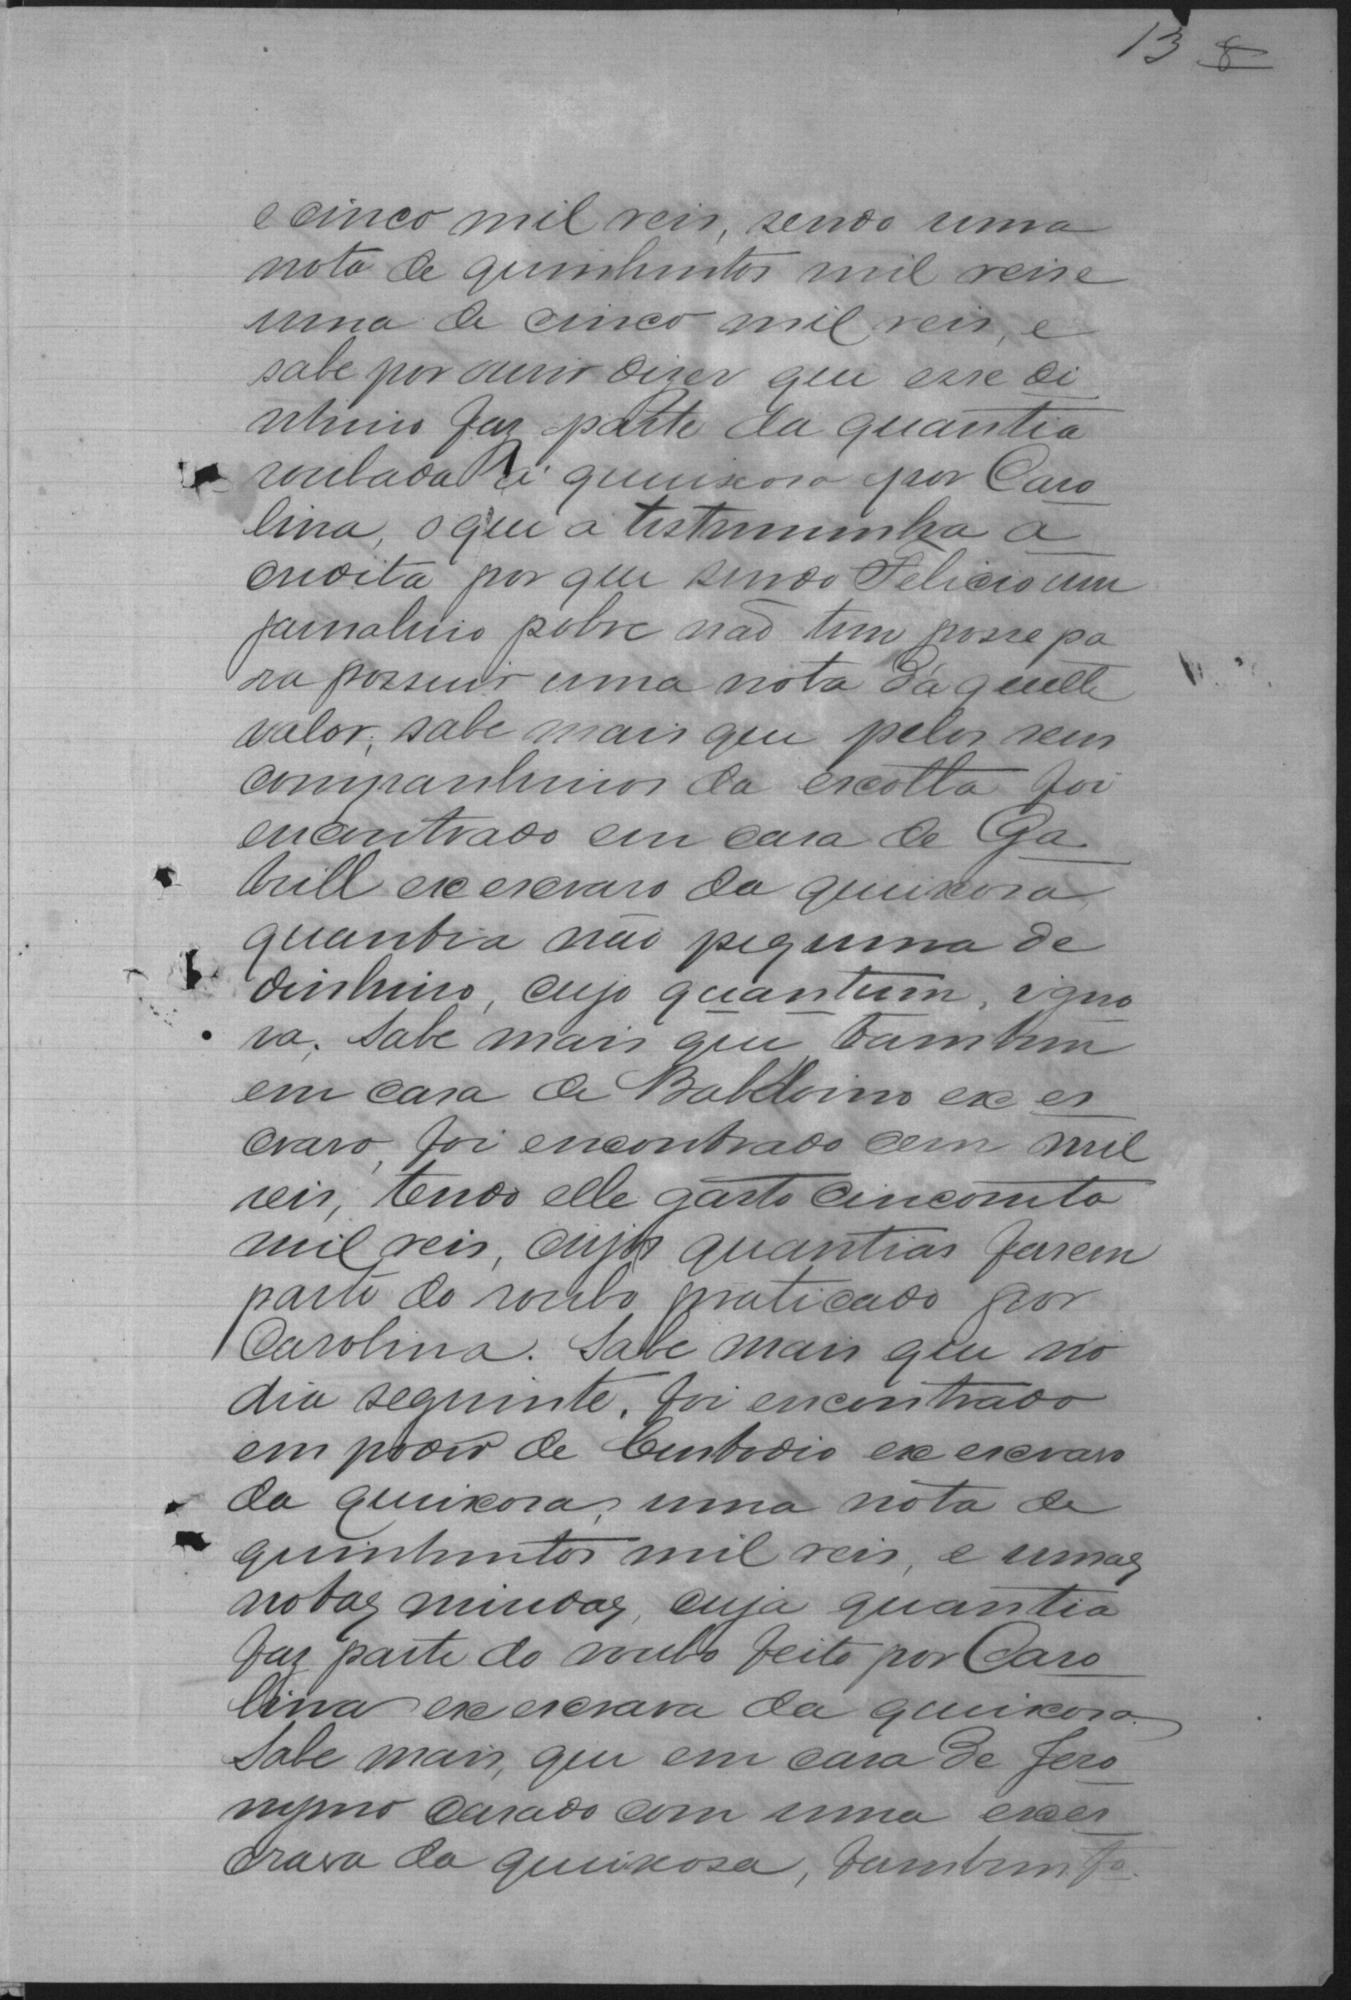 13 8
e cinco mil reis, sendo uma
nota de quinhentos mil reis e
uma de cinco mil reis, e
sabe por ouvir dizer que esse di
nheiro faz parte da quantia
roubada á queixosa por Caro
lina, o que a testemunha a
credita por que sendo Felicio um
jornaleiro pobre não tem posse pa
ra possuir uma nota daquelle
valor, sabe mais que pelos seus
companheiros da escolta foi
encontrado em casa de Ga
briell ex escravo da queixosa
quantia não pequena de
dinheiro, cujo quantum, igno
ra. Sabe mais que tambem
em casa de Baldoino ex es
cravo, foi encontrado cem mil
reis, tendo elle gasto cincoenta
mil reis, cujas quantias fasem
parte do roubo praticado por
Carolina. Sabe mais que no
dia seguinte, foi encontrado
em poder de Custodio ex escravo
da queixosa, uma nota de
quinhentos mil reis, e umas
notas miudas, cuja quantia
faz parte do roubo feito por Caro
lina ex escrava da queixosa.
Sabe mais, que em casa de Jero
nymo casado com uma ex es
crava da queixosa, tambem fo